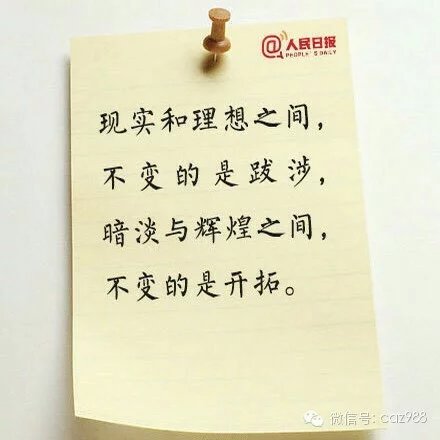 @人民日报
PEOPLE'S DAILY
现实和理想之间，
不变的是跋涉，
暗淡与辉煌之间，
不变的是开拓。
微信号: caz988